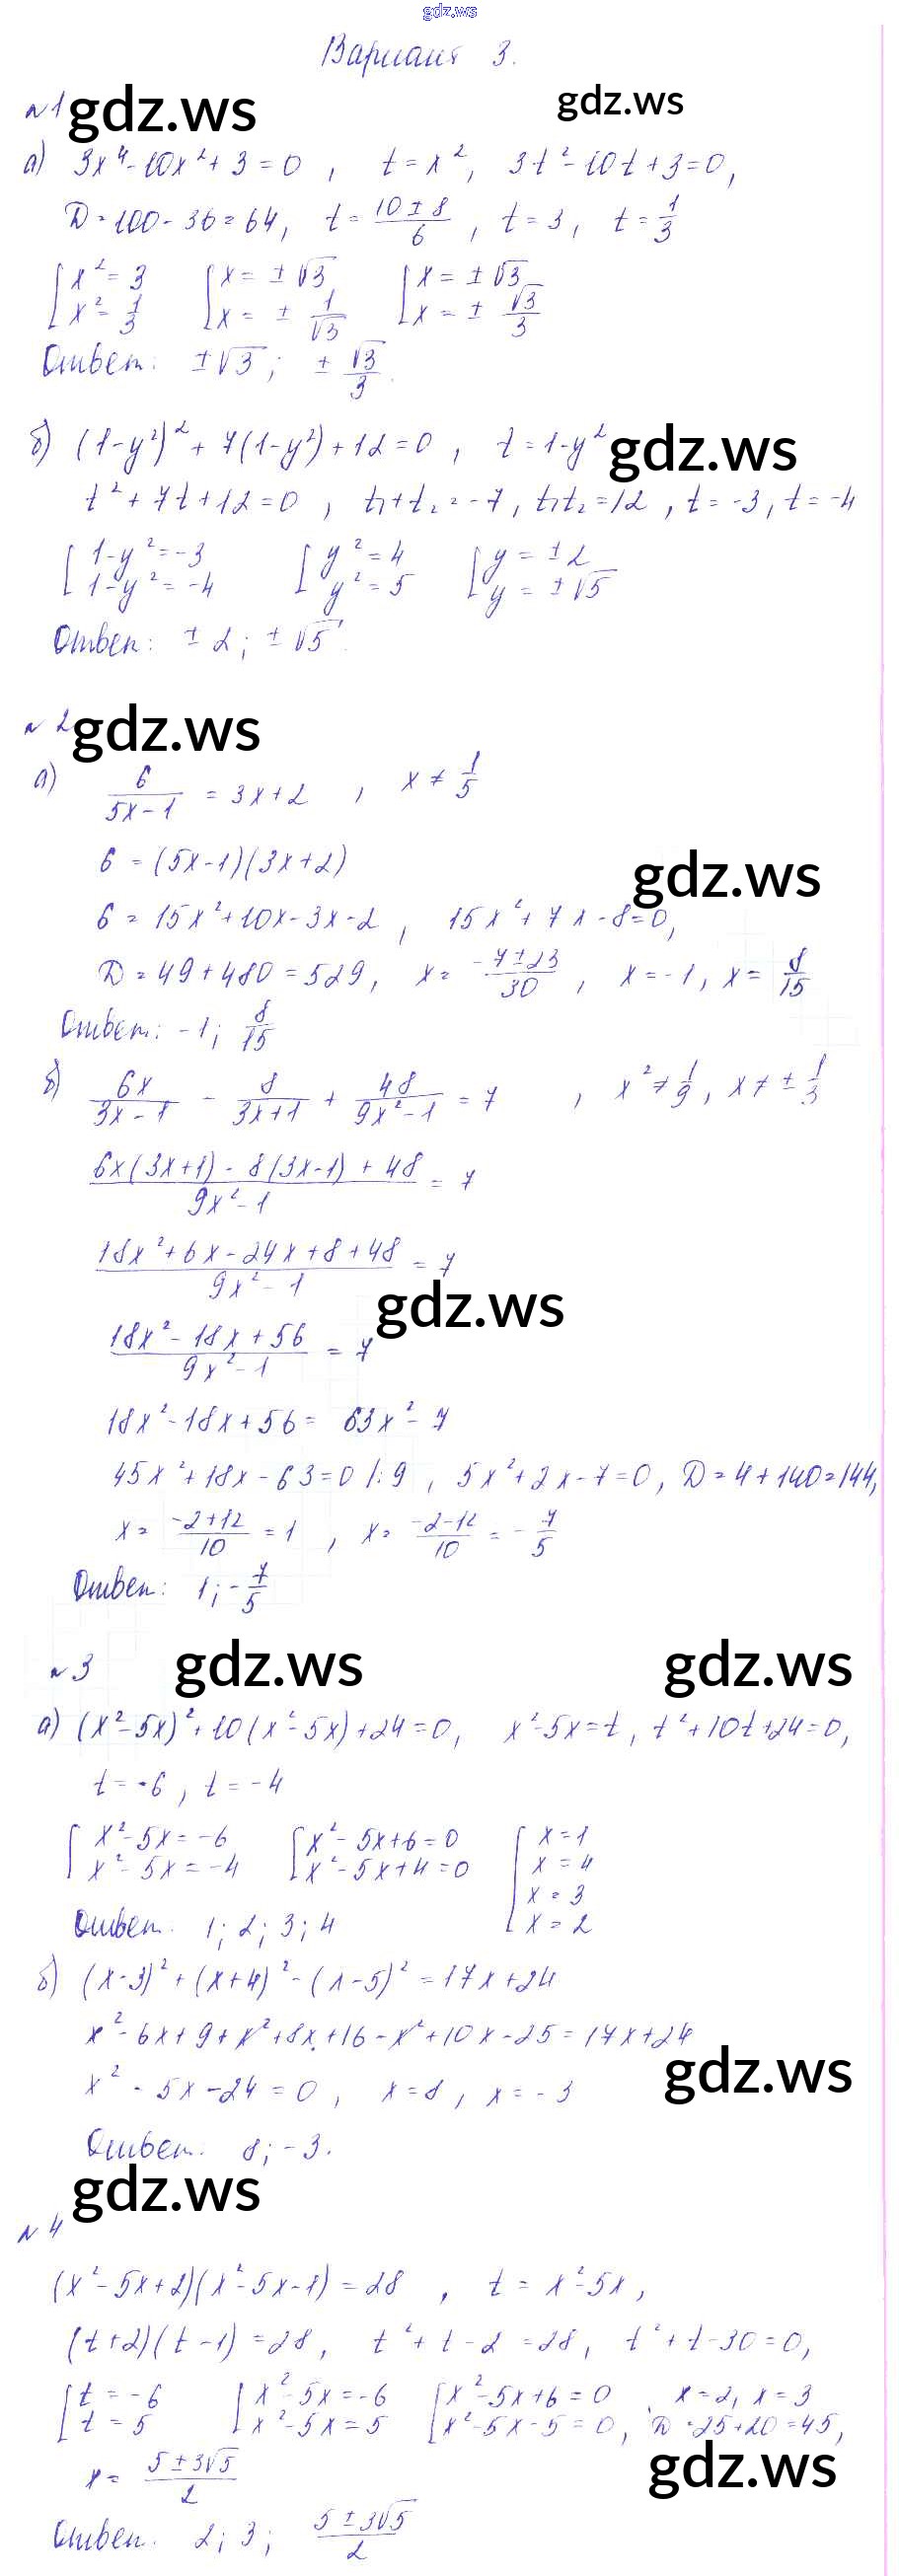 gdz.ws
Вариант 3.
№1 gdz.ws gdz.ws
а) 3x⁴ - 10x² + 3 = 0 , t = x², 3t² - 10t + 3 = 0,
D = 100 - 36 = 64, t = (10 ± 8)/6 , t = 3, t = 1/3
[ x² = 3 [ x = ± √3 [ x = ± √3
x² = 1/3 x = ± 1/√3 x = ± √3/3
Ответ: ± √3 ; ± √3/3.
б) (1-y²)² + 7(1-y²) + 12 = 0 , t = 1-y² gdz.ws
t² + 7t + 12 = 0 , t₁+t₂ = -7, t₁t₂ = 12 , t = -3, t = -4
[ 1-y² = -3 [ y² = 4 [ y = ± 2
1-y² = -4 y² = 5 y = ± √5
Ответ: ± 2; ± √5.
№ 2 gdz.ws
а) 6/(5x-1) = 3x+2 , x ≠ 1/5
6 = (5x-1)(3x+2)
gdz.ws
6 = 15x² + 10x - 3x - 2 , 15x² + 7x - 8 = 0,
D = 49 + 480 = 529, x = (-7±23)/30 , x = -1, x = 8/15
Ответ: -1; 8/15
б) 6x/(3x-1) - 8/(3x+1) + 48/(9x²-1) = 7 , x² ≠ 1/9, x ≠ ± 1/3
(6x(3x+1) - 8(3x-1) + 48)/(9x²-1) = 7
(18x² + 6x - 24x + 8 + 48)/(9x²-1) = 7
gdz.ws
(18x² - 18x + 56)/(9x²-1) = 7
18x² - 18x + 56 = 63x² - 7
45x² + 18x - 63 = 0 /: 9 , 5x² + 2x - 7 = 0, D = 4 + 140 = 144,
x = (-2+12)/10 = 1 , x = (-2-12)/10 = - 7/5
Ответ: 1; - 7/5
№3 gdz.ws gdz.ws
а) (x²-5x)² + 10(x²-5x) + 24 = 0, x²-5x = t, t² + 10t + 24 = 0,
t = -6, t = -4
[ x²-5x = -6 [ x²-5x+6 = 0 [ x = 1
x²-5x = -4 x²-5x+4 = 0 x = 4
x = 3
Ответ. 1; 2; 3; 4 x = 2
б) (x-3)² + (x+4)² - (x-5)² = 17x+24
x² - 6x + 9 + x² + 8x + 16 - x² + 10x - 25 = 17x+24
gdz.ws
x² - 5x - 24 = 0 , x = 8 , x = -3
Ответ. 8; -3.
gdz.ws
№4
(x²-5x+2)(x²-5x-1) = 28 , t = x²-5x,
(t+2)(t-1) = 28, t² + t - 2 = 28, t² + t - 30 = 0,
[ t = -6 [ x²-5x = -6 [ x²-5x+6 = 0 x = 2, x = 3
t = 5 x²-5x = 5 x²-5x-5 = 0, D = 25+20 = 45,
gdz.ws
x = (5 ± 3√5)/2
Ответ. 2; 3; (5 ± 3√5)/2